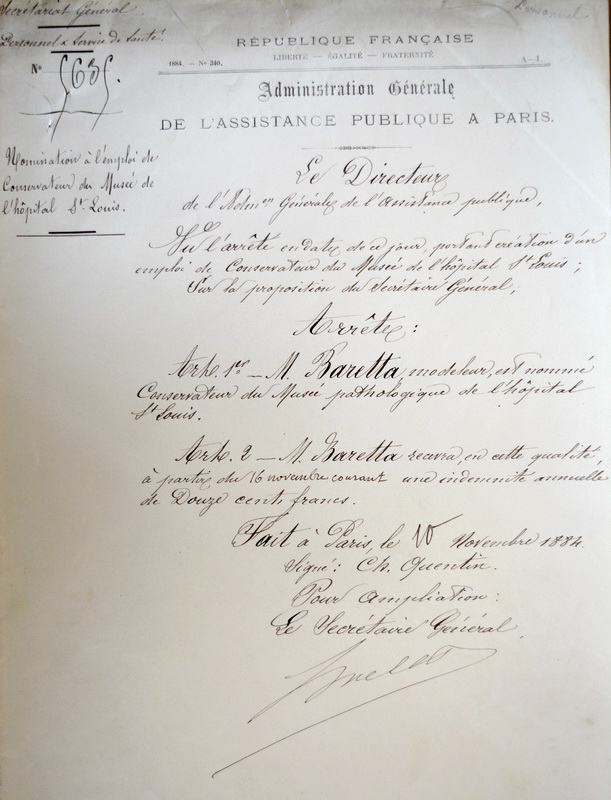 Secrétariat Général.
Personnel
Personnel & Service de Santé.
Nº 5635.
RÉPUBLIQUE FRANÇAISE
LIBERTÉ — ÉGALITÉ — FRATERNITÉ
1884. — Nº 240.
A—1.
Administration Générale
DE L'ASSISTANCE PUBLIQUE A PARIS.
Nomination à l'emploi de
Conservateur du Musée de
l'hôpital St-Louis.
Le Directeur
de l'Adm.on Générale de l'Assistance publique,
Vu l'arrêté en date de ce jour, portant création d'un
emploi de Conservateur du Musée de l'hôpital St Louis ;
Sur la proposition du Secrétaire Général,
Arrête :
Art. 1er — M. Baretta, modeleur, est nommé
Conservateur du Musée pathologique de l'hôpital
St Louis.
Art. 2 — M. Baretta recevra, en cette qualité,
à partir du 16 novembre courant une indemnité annuelle
de Douze cents francs.
Fait à Paris, le 10 Novembre 1884.
Signé : Ch. Quentin.
Pour ampliation :
Le Secrétaire Général,